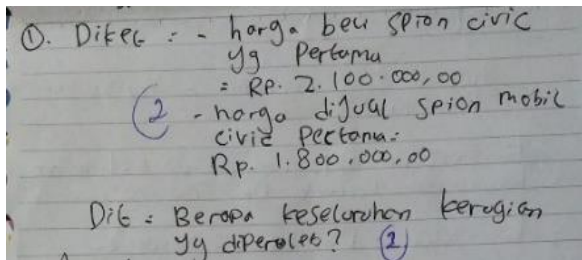 ①. Diket : - harga beli spion civic
yg Pertama
= RP. 2.100.000,00
② - harga dijual spion mobil
civic Pertama:
Rp. 1.800.000,00
Dit : Berapa keseluruhan kerugian
yg diperoleh? ②